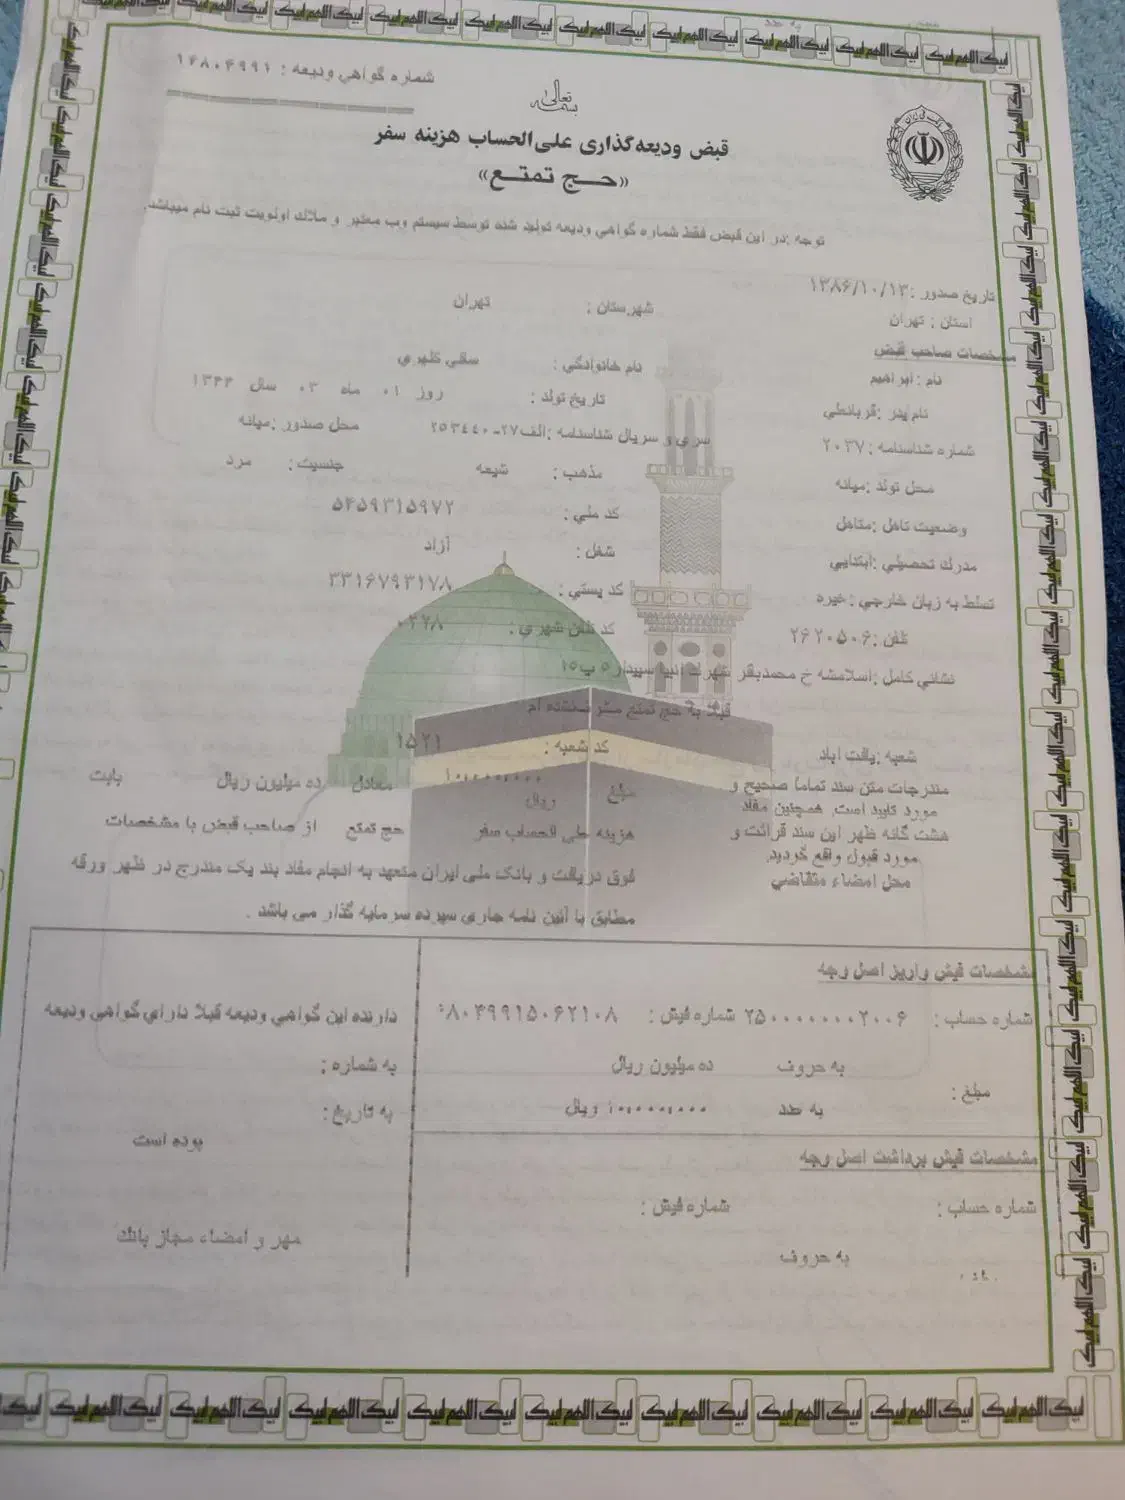 شماره گواهي وديعه : ۱۶۸۰۴۹۹۱
بسمه تعالی
قبض ودیعه‌گذاری علی‌الحساب هزینه سفر
«حـــج تمتـــع»
توجه :در اين قبض فقط شماره گواهي وديعه توليد شده توسط سيستم وب معتبر و ملاك اولويت ثبت نام ميباشد.
تاريخ صدور :۱۳۸۶/۱۰/۱۳
استان : تهران شهرستان : تهران
مشخصات صاحب قبض
نام : ابراهيم نام خانوادگي : ساقي كلهري
نام پدر :قربانعلي تاريخ تولد : روز ۰۱ ماه ۰۳ سال ۱۳۴۴
شماره شناسنامه :۲۰۳۷ سري و سريال شناسنامه :الف۲۷-۲۵۳۴۴۰ محل صدور :ميانه
محل تولد :ميانه مذهب : شيعه جنسيت : مرد
وضعيت تاهل :متاهل كد ملي : ۵۴۵۹۳۱۵۹۷۲
مدرك تحصيلي :ابتدايي شغل : آزاد
تسلط به زبان خارجي :غيره كد پستي : ۳۳۱۶۷۹۳۱۷۸
تلفن :۲۶۲۰۵۰۶ كد تلفن شهري : ۰۲۲۸
نشاني كامل :اسلامشه خ محمدباقر شهرك انبيا سپيدار۵ پ۱۵
قبلا به حج تمتع مشرف نشده ام
شعبه :يافت آباد كد شعبه : ۱۵۲۱
مندرجات متن سند تماما صحيح و
مورد تاييد است. همچنين مفاد
هشت گانه ظهر اين سند قرائت و
مورد قبول واقع گرديد.
محل امضاء متقاضي
مبلغ ۱۰,۰۰۰,۰۰۰ ريال معادل ده ميليون ريال بابت
هزينه علي الحساب سفر حج تمتع از صاحب قبض با مشخصات
فوق دريافت و بانک ملی ايران متعهد به انجام مفاد بند يک مندرج در ظهر ورقه
مطابق با آئين نامه جاری سپرده سرمايه گذار می باشد .
مشخصات فيش واريز اصل وجه
شماره حساب : ۲۵۰۰۰۰۰۰۰۲۰۰۶ شماره فيش : ۸۰۴۹۹۱۵۰۶۲۱۰۸
مبلغ :
به حروف ده ميليون ريال
به عدد ۱۰,۰۰۰,۰۰۰ ريال
مشخصات فيش برداشت اصل وجه
شماره حساب : شماره فيش :
به حروف
دارنده اين گواهی وديعه قبلا دارای گواهی وديعه
به شماره :
به تاريخ :
بوده است
مهر و امضاء مجاز بانك